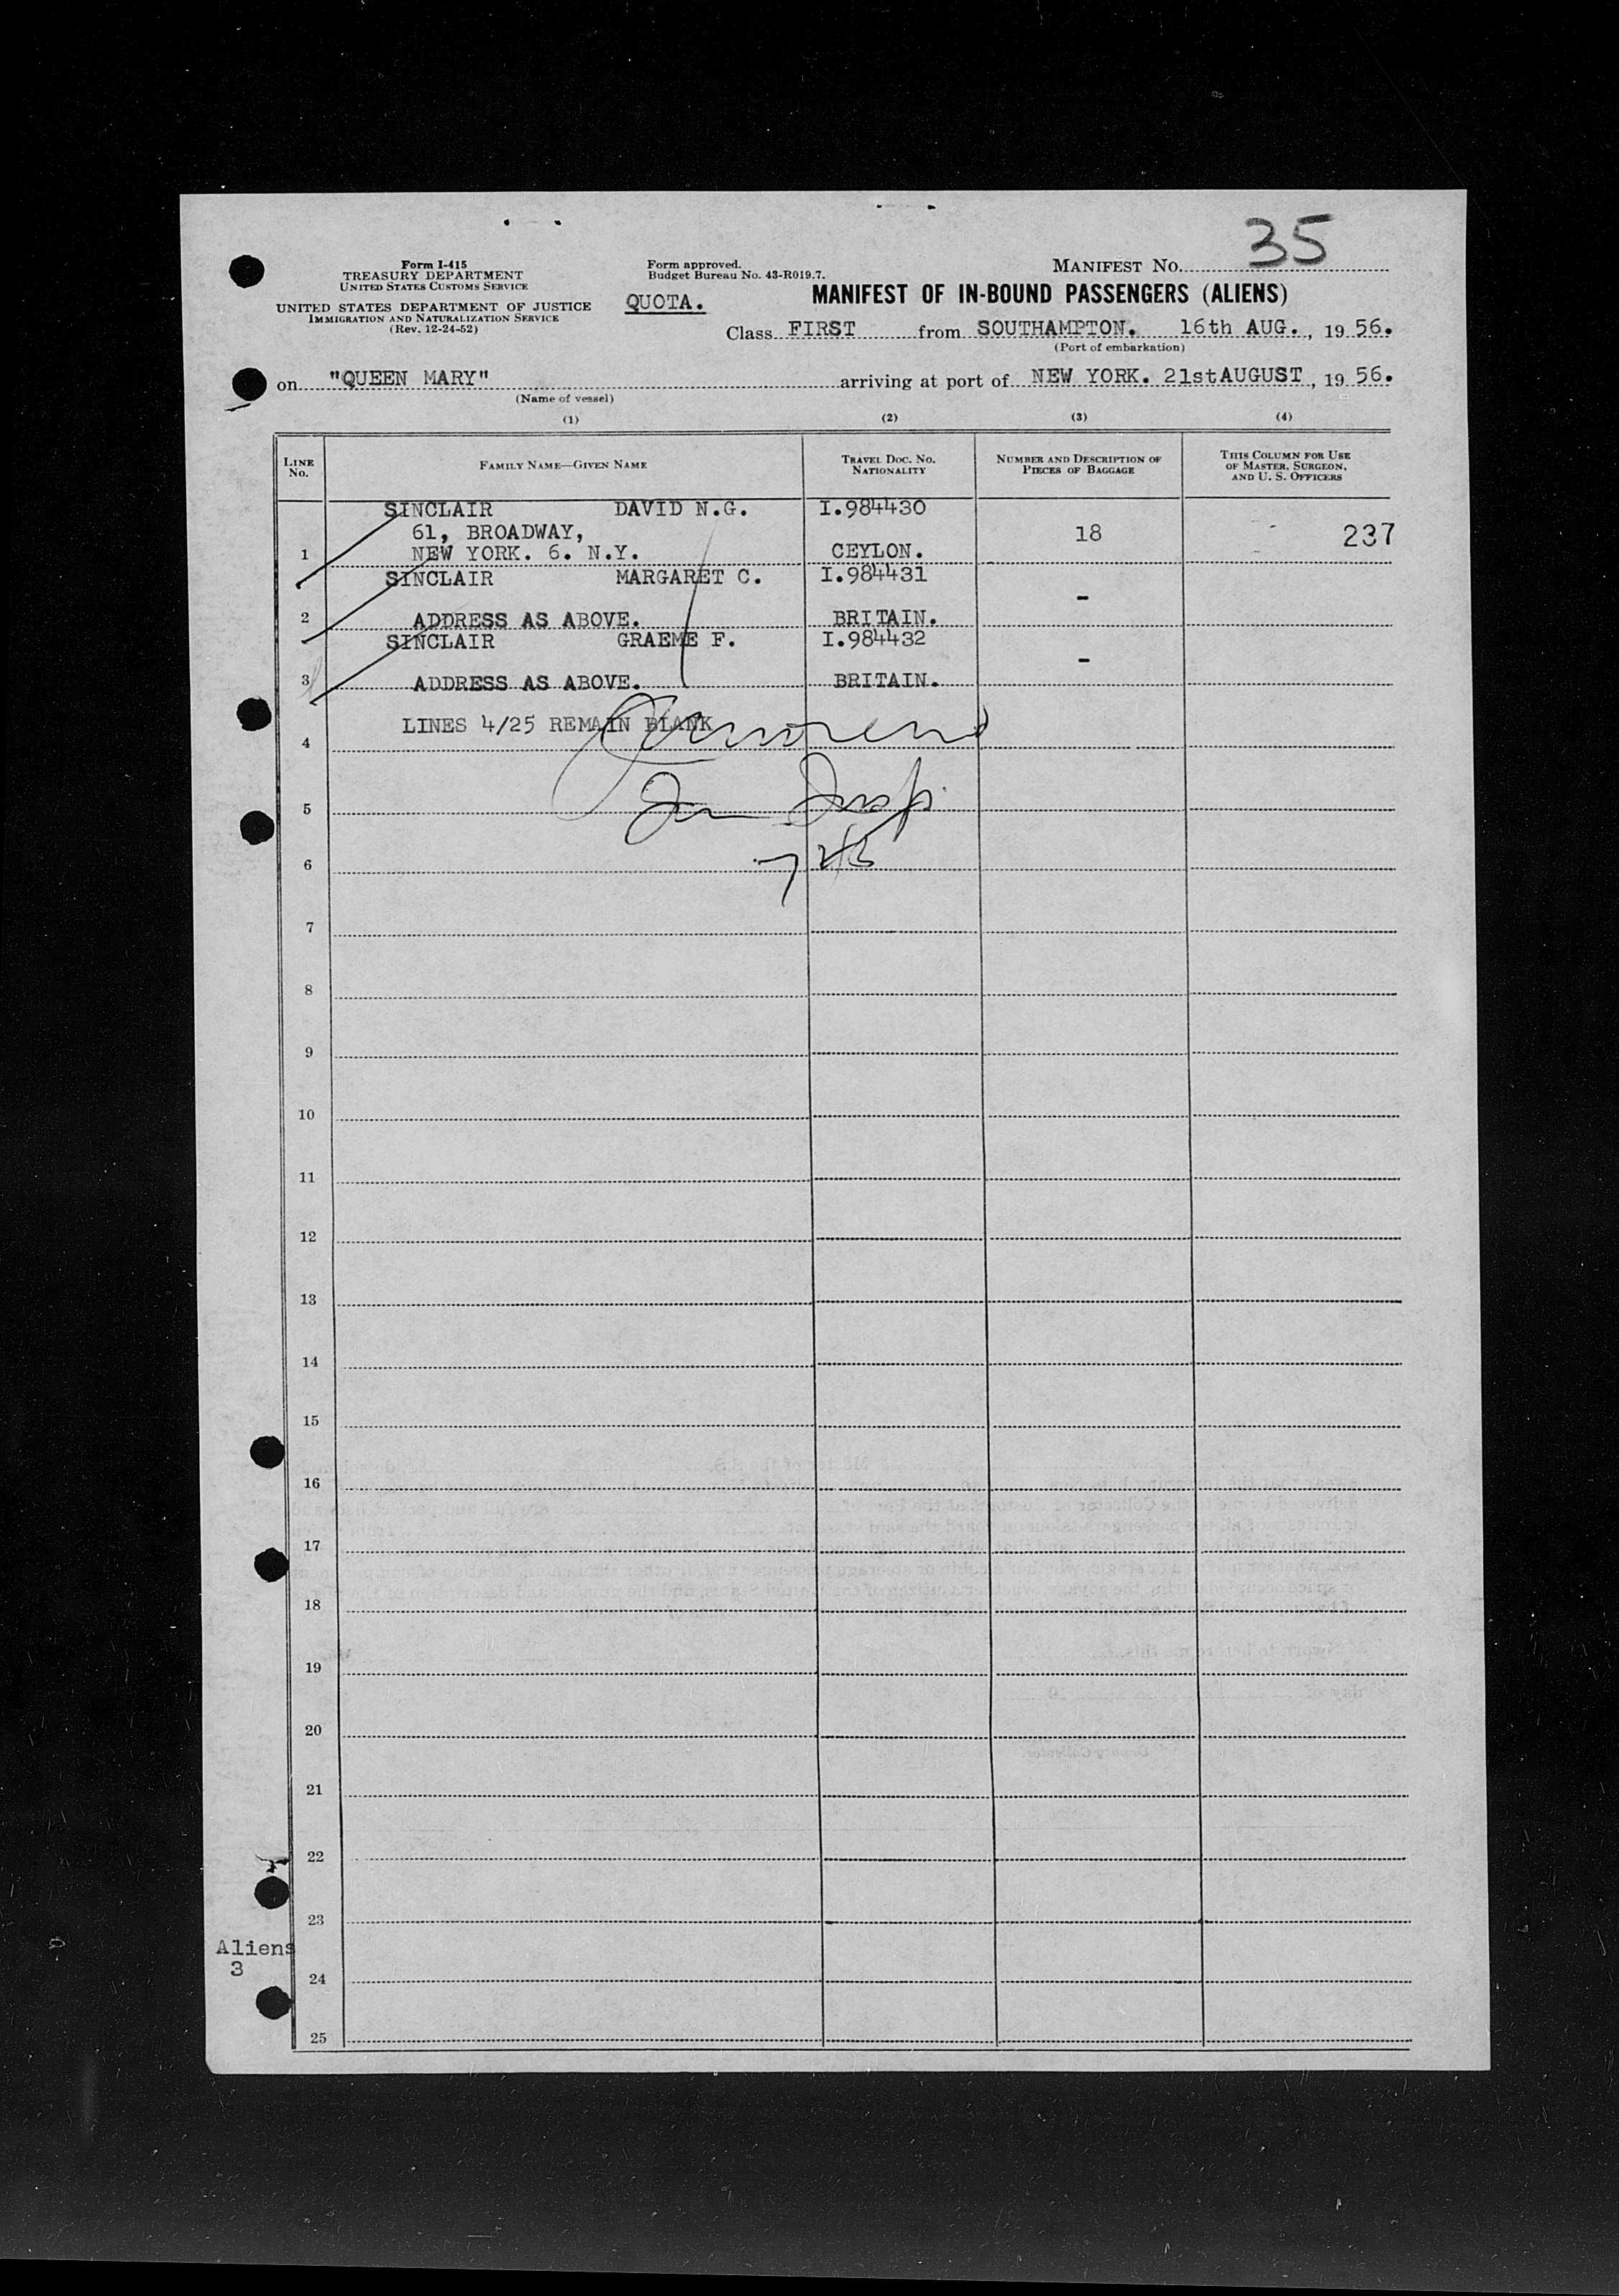 35
Form I-415
TREASURY DEPARTMENT
UNITED STATES CUSTOMS SERVICE
UNITED STATES DEPARTMENT OF JUSTICE
IMMIGRATION AND NATURALIZATION SERVICE
(Rev. 12-24-52)
Form approved.
Budget Bureau No. 43-R019.7.
QUOTA.
MANIFEST No.
MANIFEST OF IN-BOUND PASSENGERS (ALIENS)
Class FIRST from SOUTHAMPTON. 16th AUG., 19 56.
(Port of embarkation)
on "QUEEN MARY" arriving at port of NEW YORK. 21st AUGUST, 19 56.
(Name of vessel)
(1) (2) (3) (4)
LINE No. FAMILY NAME—GIVEN NAME TRAVEL DOC. No. NATIONALITY NUMBER AND DESCRIPTION OF PIECES OF BAGGAGE THIS COLUMN FOR USE OF MASTER, SURGEON, AND U. S. OFFICERS
SINCLAIR DAVID N.G. I.984430
61, BROADWAY, 18 237
1 NEW YORK. 6. N.Y. CEYLON.
SINCLAIR MARGARET C. I.984431
-
2 ADDRESS AS ABOVE. BRITAIN.
SINCLAIR GRAEME F. I.984432
-
3 ADDRESS AS ABOVE. BRITAIN.
LINES 4/25 REMAIN BLANK
4
5
6
7
8
9
10
11
12
13
14
15
16
17
18
19
20
21
22
23
Aliens
3
24
25